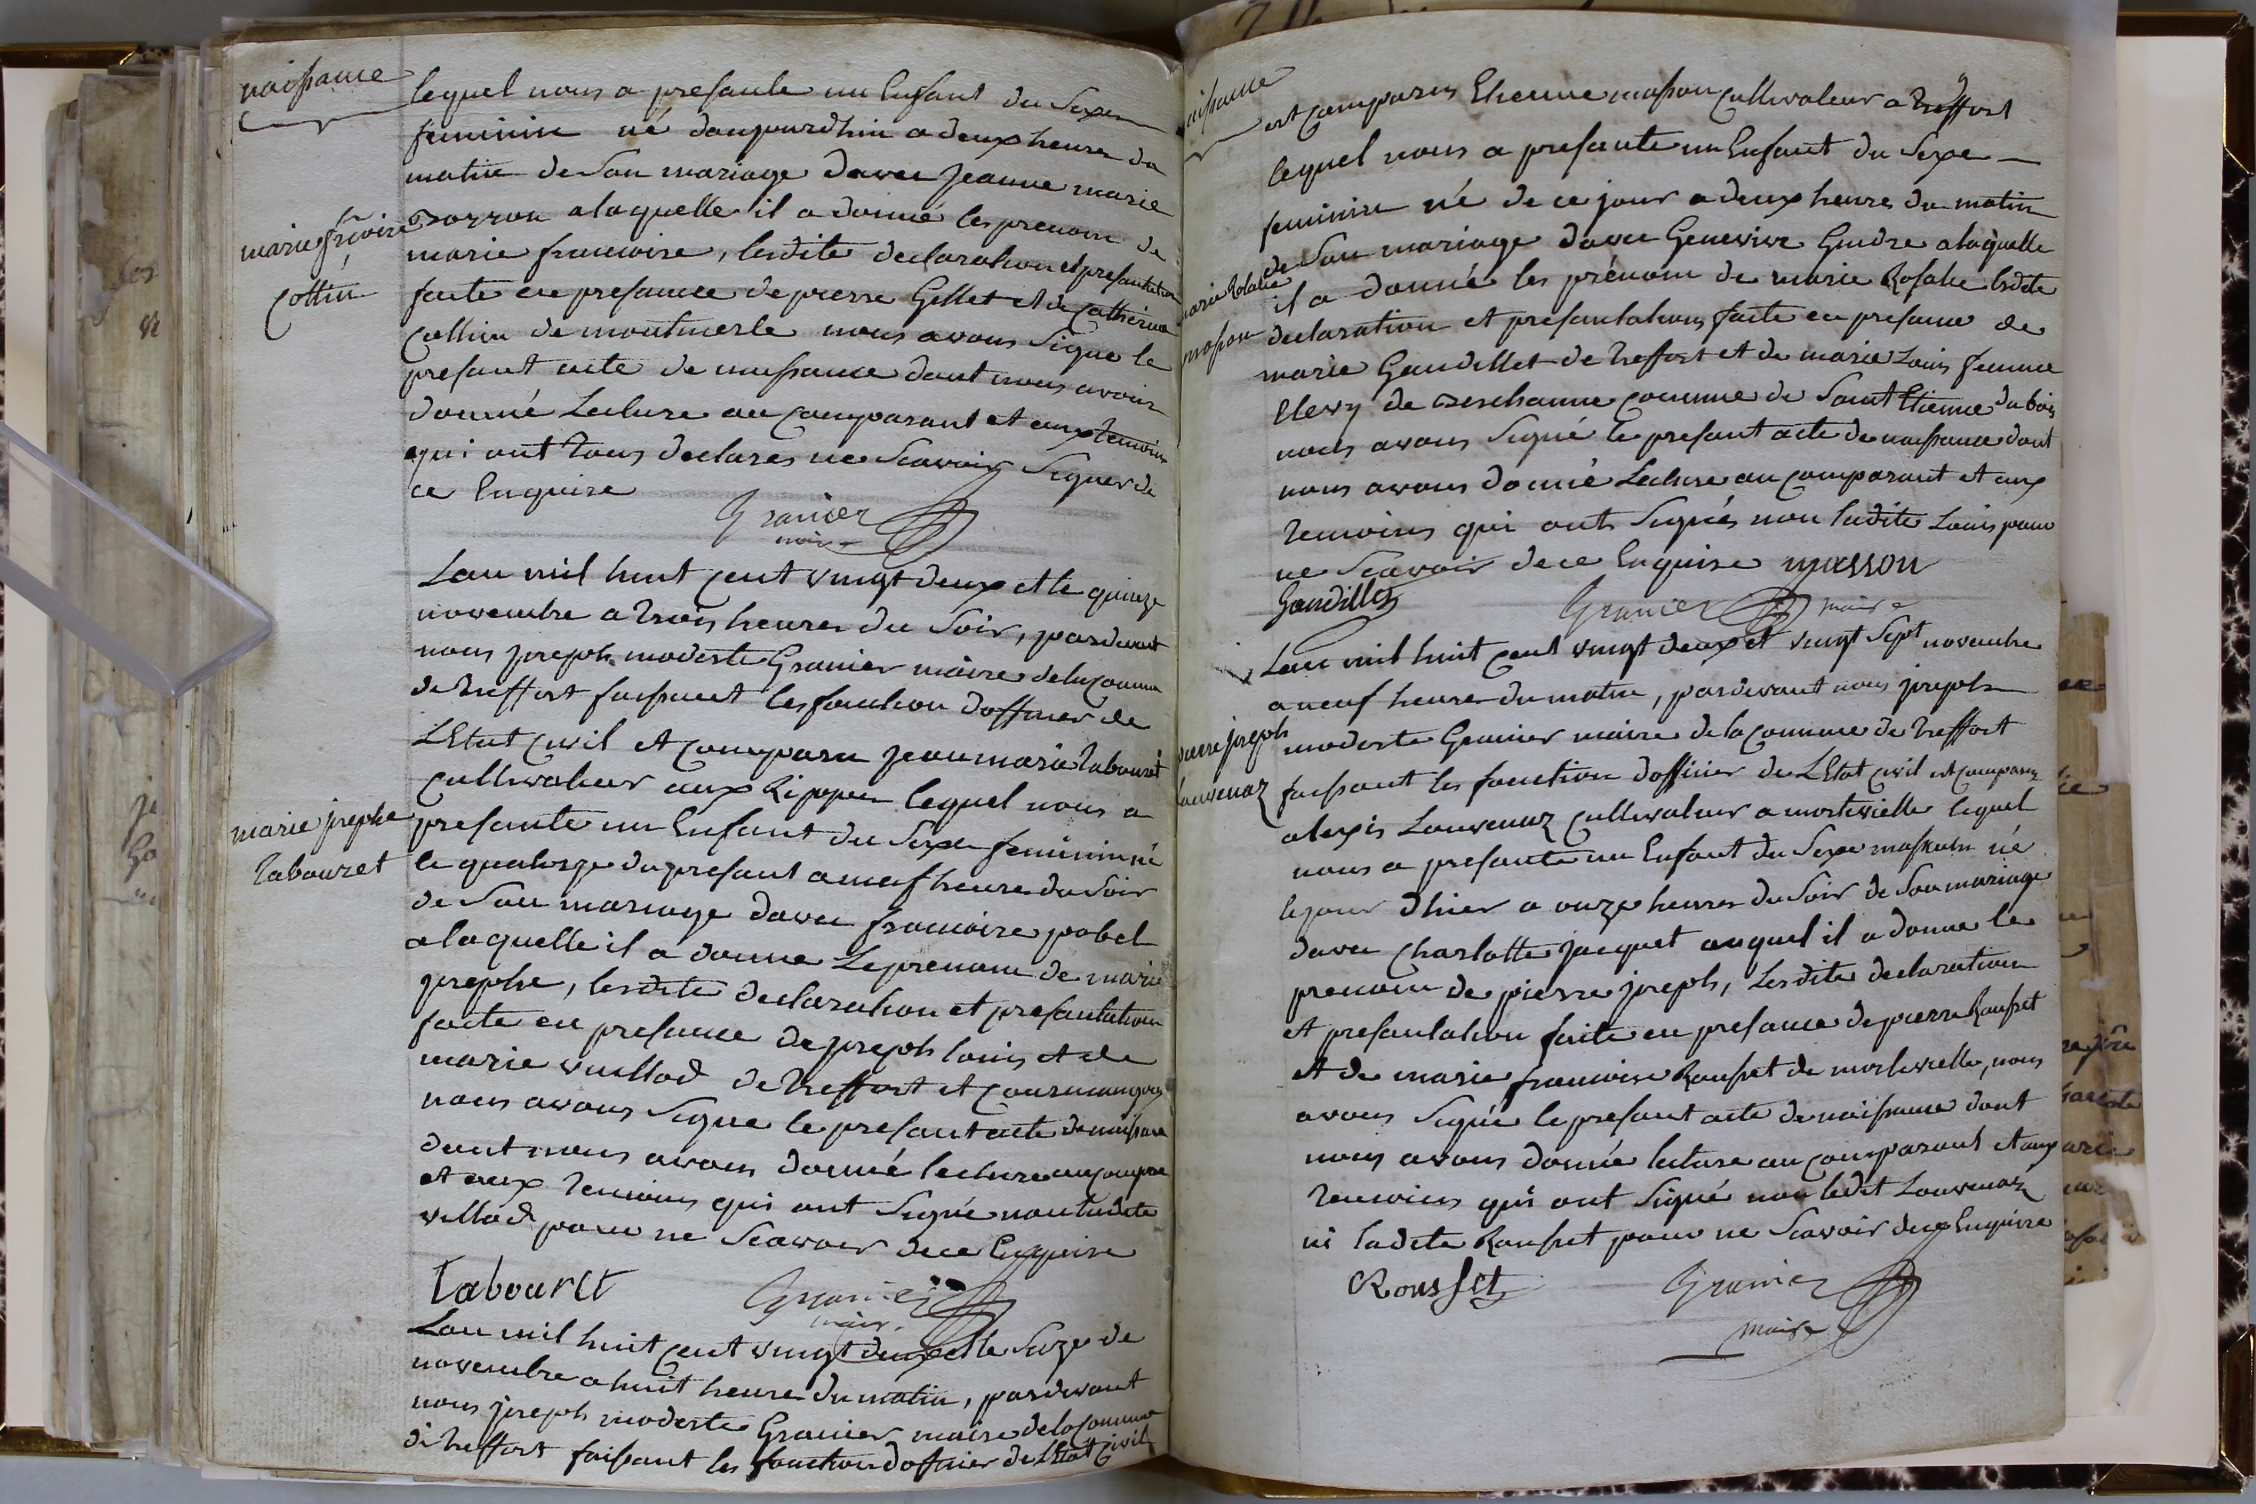 naissance
lequel nous a presante un Enfant du Sexe
feminin né daujourdhui a deux heures du
matin de Son mariage davec jeanne marie
marie frcoise
Collin
Bozzon a laquelle il a donné les prenom de
marie francoise, lesdite declaration et presantation
faite en presance de pierre Gillet et de Catherine
Collin de montmerle nous avons Signe le
presant acte de naissance dont nous avons
donné Lecture au Comparant et aux temoins
qui ont tous declares ne Scavoir Signer de
ce Enquise
Granier
maire
Lan mil huit Cent vingt deux et le quinze
novembre a trois heures du Soir, pardevant
nous joseph modeste Granier maire de la Commune
de treffort faissant les fonction dofficier de
LEtat Civil et Comparu jean marie tabouret
Cultivateur aux Rippes lequel nous a
marie josephe
tabouret
presante un Enfant du Sexe feminin né
le quatorze du presant a neuf heure du Soir
de Son mariage davec francoise pobel
a laquelle il a donne Le prenom de marie
josephe, lesdite declaration et presantation
faite en presance de joseph louis et de
marie vuillod de treffort et Courmangoux
nous avons Signe le presant acte de naissance
dont nous avons donné lecture au Compara
et aux temoins qui ont Signé non ladite
villod pour ne Scavoir de ce Enquise
Tabouret
Granier
maire
Lan mil huit Cent vingt deux et le Seize de
novembre a huit heures du matin, pardevant
nous joseph modeste Granier maire de la Commune
de treffort faissant les fonction dofficier de LEtat Civil
naissance
est Comparus Etienne masson Cultivateur a treffort
lequel nous a presante un Enfant du Sexe
feminin né de ce jour a deux heures du matin
de Son mariage davec Genevive Guidre a laquelle
marie Rosalie
masson
il a donné les prénom de marie Rosalie lesdite
declaration et presantations faite en presance de
marie Gaudillet de treffort et de marie Louis femme
Elevy de Beschanne Commune de Saint Etienne du bois
nous avons Signé le presant acte de naissance dont
nous avons donné Lecture au Comparant et aux
temoins qui ont Signés non ladite Louis pour
ne Scavoir de ce Enquise masson
Gaudillet
Granier maire
Lan mil huit Cent vingt deux et vingt Sept novembre
a neuf heures du matin, pardevant nous joseph
pierre joseph
Louvenaz
modeste Granier maire de la Commune de treffort
faissant les fonction dofficier de LEtat Civil est Comparus
alexis Louvenaz Cultivateur a mortevielle lequel
nous a presante un Enfant du Sexe maskulin né
le jour dhier a onze heures du Soir de Son mariage
davec Charlotte jacquet auquel il a donne le
prenom de pierre joseph, Lesdite declaration
et presantation faite en presance de pierre Rousset
et de marie francoise Rousset de mortevielle, nous
avons Signé le presant acte de naissance dont
nous avons donné lecture au Comparant et aux
temoins qui ont Signé non ledit Louvenaz
ni ladite Rousset pour ne Scavoir de ce Enquise
Rousset
Granier
maire